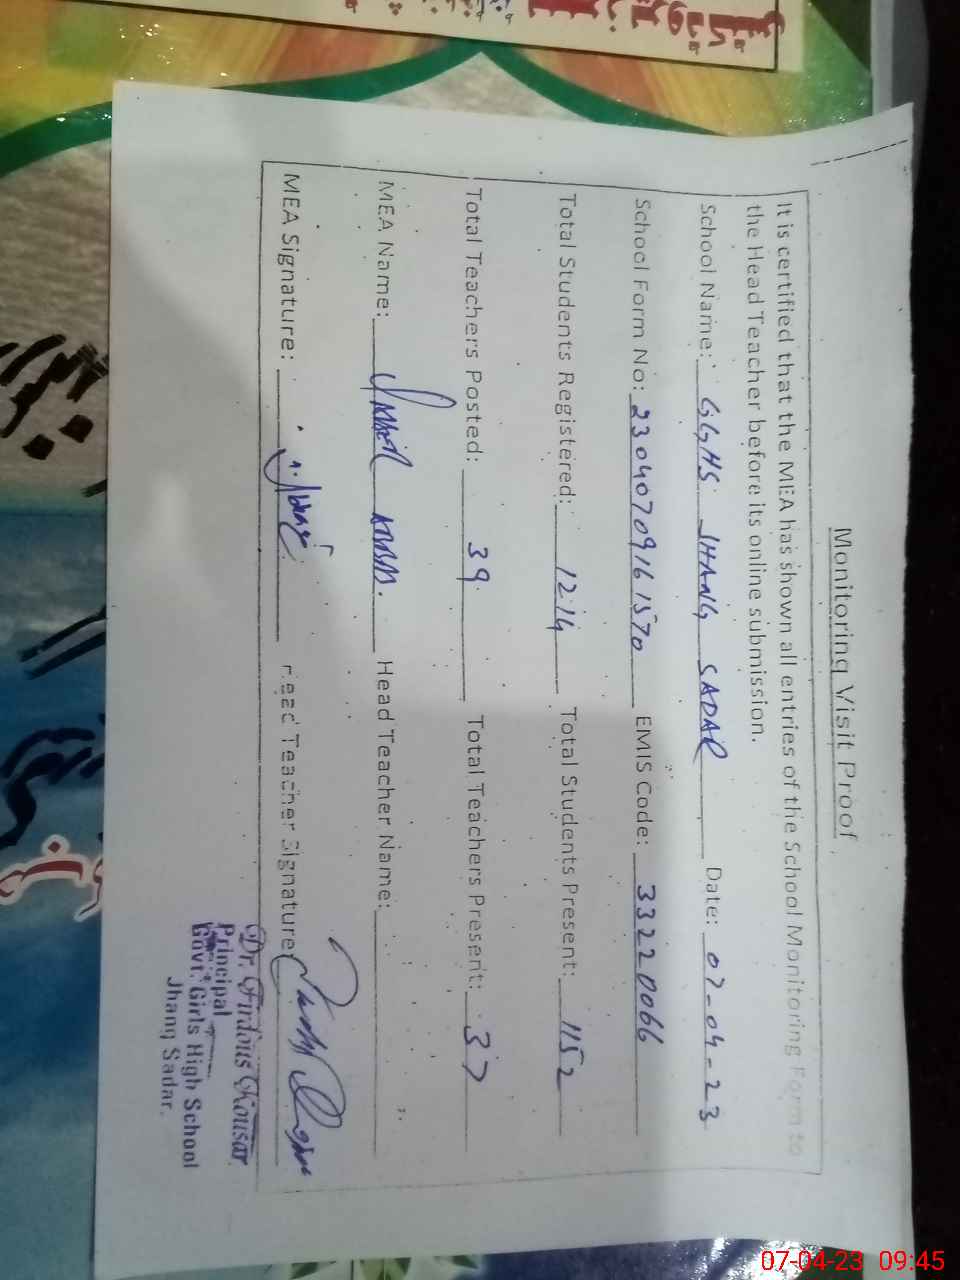 Monitoring Visit Proof
It is certified that the MEA has shown all entries of the School Monitoring Form to
the Head Teacher before its online submission.
School Name: GGHS JHANG SADAR Date: 07-04-23
School Form No: 23040709161570 EMIS Code: 33220066
Total Students Registered: 1214 Total Students Present: 1152
Total Teachers Posted: 39 Total Teachers Present: 37
MEA Name: Head Teacher Name:
MEA Signature: Head Teacher Signature
Dr. Firdous Kousar
Principal
Govt. Girls High School
Jhang Sadar.
07-04-23 09:45